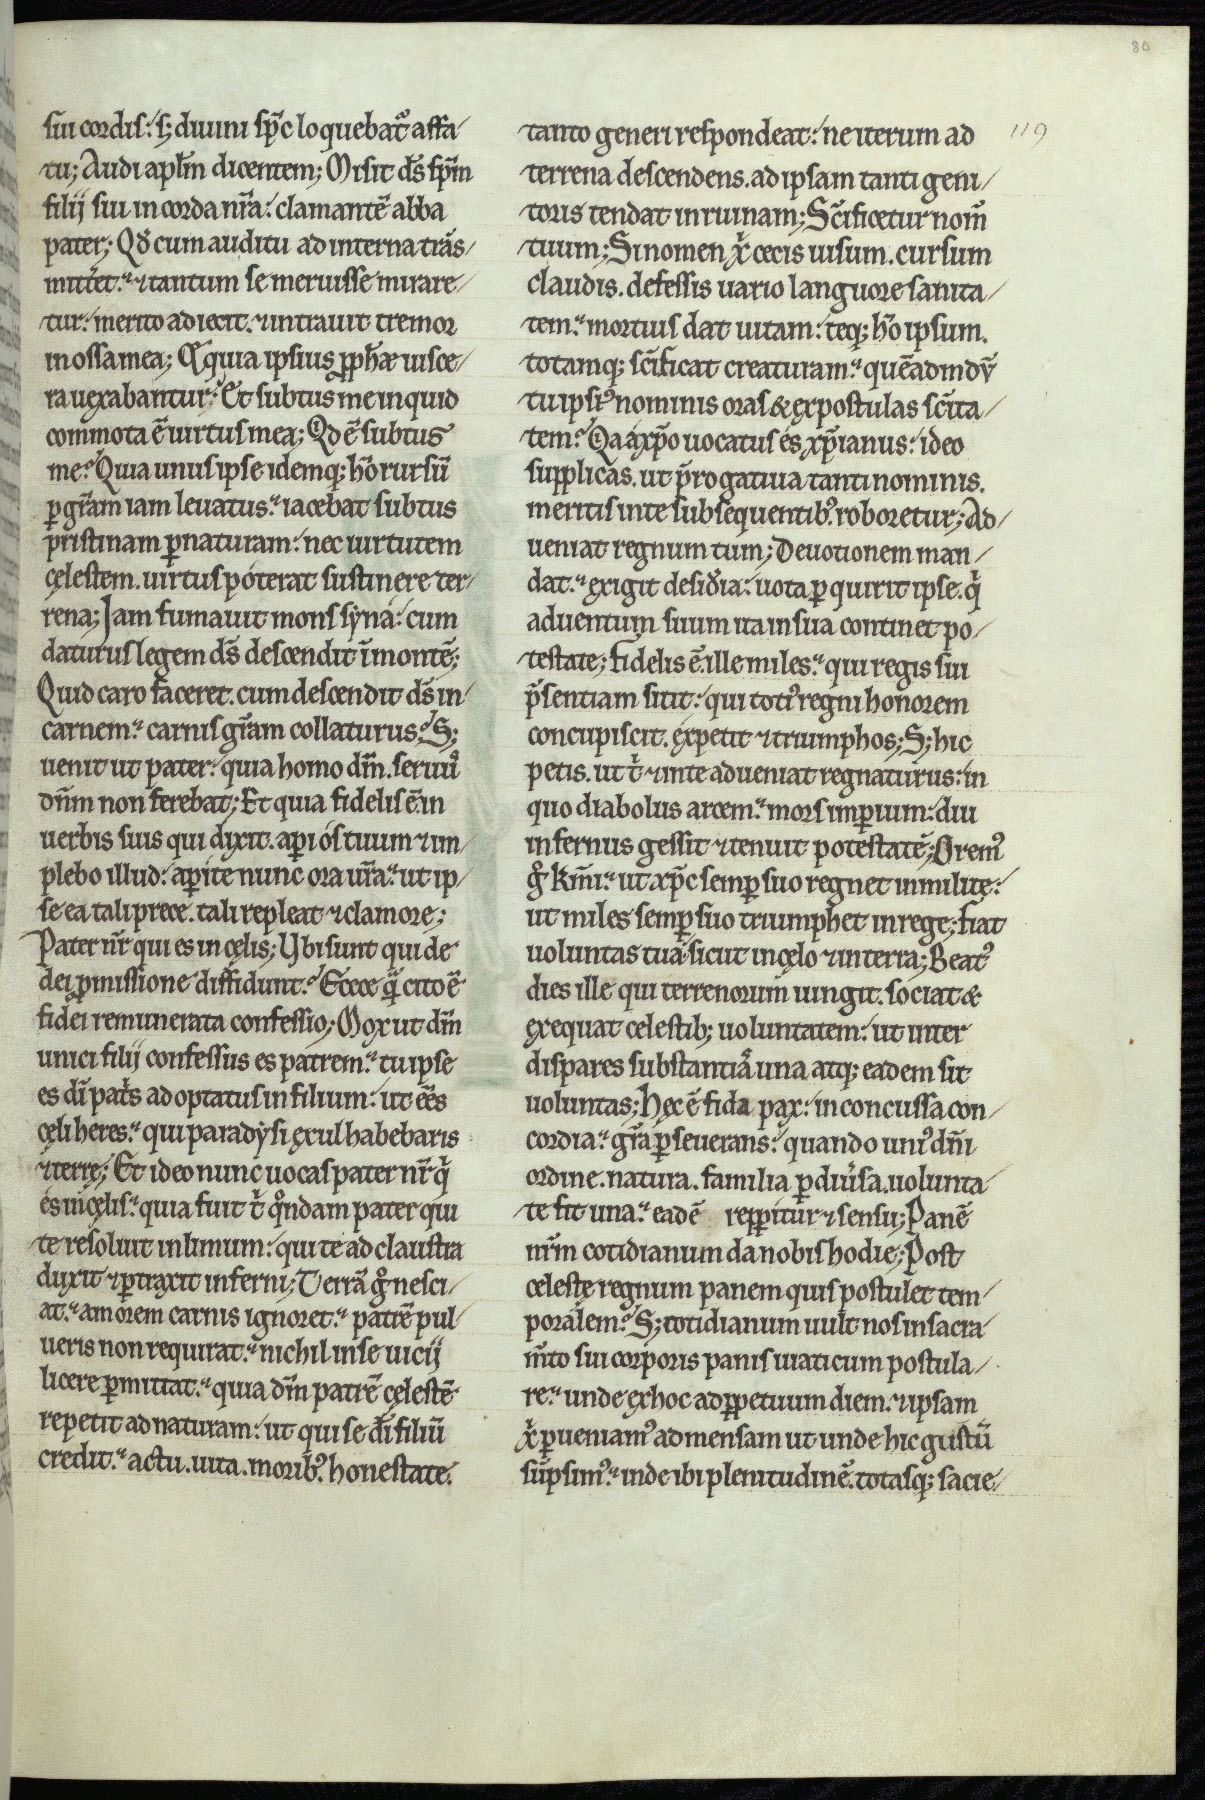 80
119
sui cordis: s; diuini sp̄c loquebat᷑ affa/
tu; Audi apl̄m dicentem; Misit d̄s sp̄m
filij sui in corda nr̄a: clamantē abba
pater; Qď cum auditu ad interna trās/
mittēt. ⁊ tantum se meruisse mirare/
tur: merito adiecit. ⁊ intrauit tremor
in ossa mea; Quia ipsius ꝓph̄æ uisce/
ra uexabantur; Et subtus me inquid
commota ē uirtus mea; Qd ē subtus
me? Quia unus ipse idemq; hō rursū
ꝑ gr̄am iam leuatus. iacebat subtus
pristinam ꝑ naturam: nec uirtutem
cęlestem. uirtus poterat sustinere ter/
rena; Iam fumauit mons syna: cum
daturus legem d̄s descendit ī montē;
Quid caro faceret. cum descendit d̄s in/
carnem. carnis gr̄am collaturus? S;
uenit ut pater: quia homo dn̄m. seruuꝰ
dn̄m non ferebat; Et quia fidelis ē in
uerbis suis qui dixit. aꝑi os tuum ⁊ im/
plebo illud: aꝑite nunc ora ur̄a. ut ip/
se ea tali prece. tali repleat ⁊ clamore;
Pater nr̄ qui es in cęlis; Ubi sunt qui de
dei ꝓmissione diffidunt? Ecce q̄ cito ē
fidei remunerata confessio; Mox ut dm̄
unici filij confessus es patrem. tu ipse
es dī patris adoptatus in filium: ut ēēs
cęli heres. qui paradysi exul habebaris
⁊ terrę; Et ideo nunc uocas pater nr̄ qͥ
es in cęlis. quia fuit tͥ qͦndam pater qui
te resoluit in limum: qui te ad claustra
duxit ⁊ ꝑtraxit inferni; Terrā gͦ nesci/
at. amorem carnis ignoret. patrē pul/
ueris non requirat. nichil in se uicij
licere ꝑmittat. quia dm̄ patrē cęlestē
repetit ad naturam: ut qui se dī filiū
credit. actu. uita. moribꝰ. honestate.
tanto generi respondeat: ne iterum ad
terrena descendens. ad ipsam tanti geni/
toris tendat in ruinam; Scīficetur nom̄
tuum; Si nomen xͥ cecis uisum. cursum
claudis. defessis uario languore sanita/
tem. mortuis dat uitam: teq; hō ipsum.
totamq; scīficat creaturam. quēadmodū
tu ipsiꝰ nominis oras & expostulas scīta/
tem? Qa a xp̄o uocatus es xp̄ianus: ideo
supplicas. ut p̄rogatiua tanti nominis.
meritis in te subsequentibꝰ. roboretur; Ad/
ueniat regnum tum; Deuotionem man/
dat. exigit desid̄ia: uota ꝑquirit ipse. qͥ
aduentum suum ita in sua continet po/
testate; Fidelis ē ille miles. qui regis sui
p̄sentiam sitit: qui totiꝰ regni honorem
concupiscit. expetit ⁊ triumphos; S; hic
petis. ut tͥ ⁊ in te adueniat regnaturus: in
quo diabolus arcem. mors imꝑium: diu
infernus gessit ⁊ tenuit potestatē; Oremꝰ
gͦ km̄i. ut xp̄c semꝑ suo regnet in milite:
ut miles semꝑ suo triumphet in rege; Fiat
uoluntas tua sicut in cęlo ⁊ in terra; Beatꝰ
dies ille qui terrenorum iungit. sociat &
exequat celestib; uoluntatem: ut inter
dispares substantiā una atq; eadem sit
uoluntas; Hęc ē fida pax: inconcussa con/
cordia. gr̄a ꝑseuerans: quando uniꝰ dn̄i
ordine. natura. familia ꝑ diuīsa. uolunta/
te fit una. eadē repꝑitur ⁊ sensu; Panē
nr̄m cotidianum da nobis hodie; Post
celeste regnum panem quis postulet tem/
poralem? S; cotidianum uult nos in sacra/
m̄to sui corporis panis uiaticum postula/
re. unde ex hoc ad ꝑpetuum diem. ⁊ ipsam
xͥ ꝑueniamꝰ ad mensam ut unde hic gustū
sūpsimꝰ. inde ibi plenitudinē. totasq; sacie/